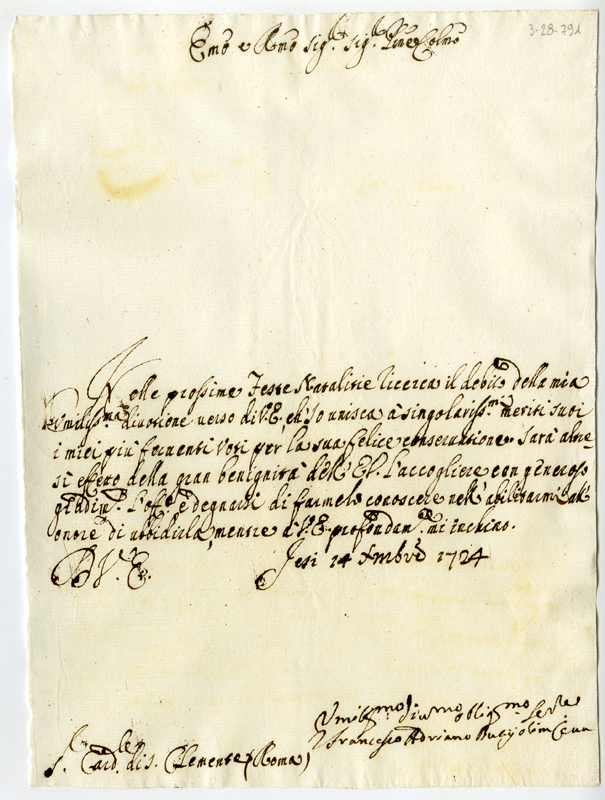 3-28-791
Emo e Rmo Sigr. Sigr. Pne Colmo
Nelle prossime Feste Natalitie ricerca il debito della mia
Umiliss.ma divotione verso di V.E. ch'Io unisca à singolariss.mi meriti suoi
i miei più ferventi Voti per la sua felice conservatione. Sarà altre=
sì effetto della gran benignità dell' E.V. l'accogliere con generoso
l'off.o e degnarsi di farmelo conoscere nell' abilitarmi all'
onore di ubbidirla, mentre à V.E. profondam.te mi inchino.
D V. E. Jesi 14 Xmbre 1724
Umiliss.mo Div.mo Oblig.mo Ser.re
Francesco Adriano
S.r Card.le di S. Clemente (Roma)